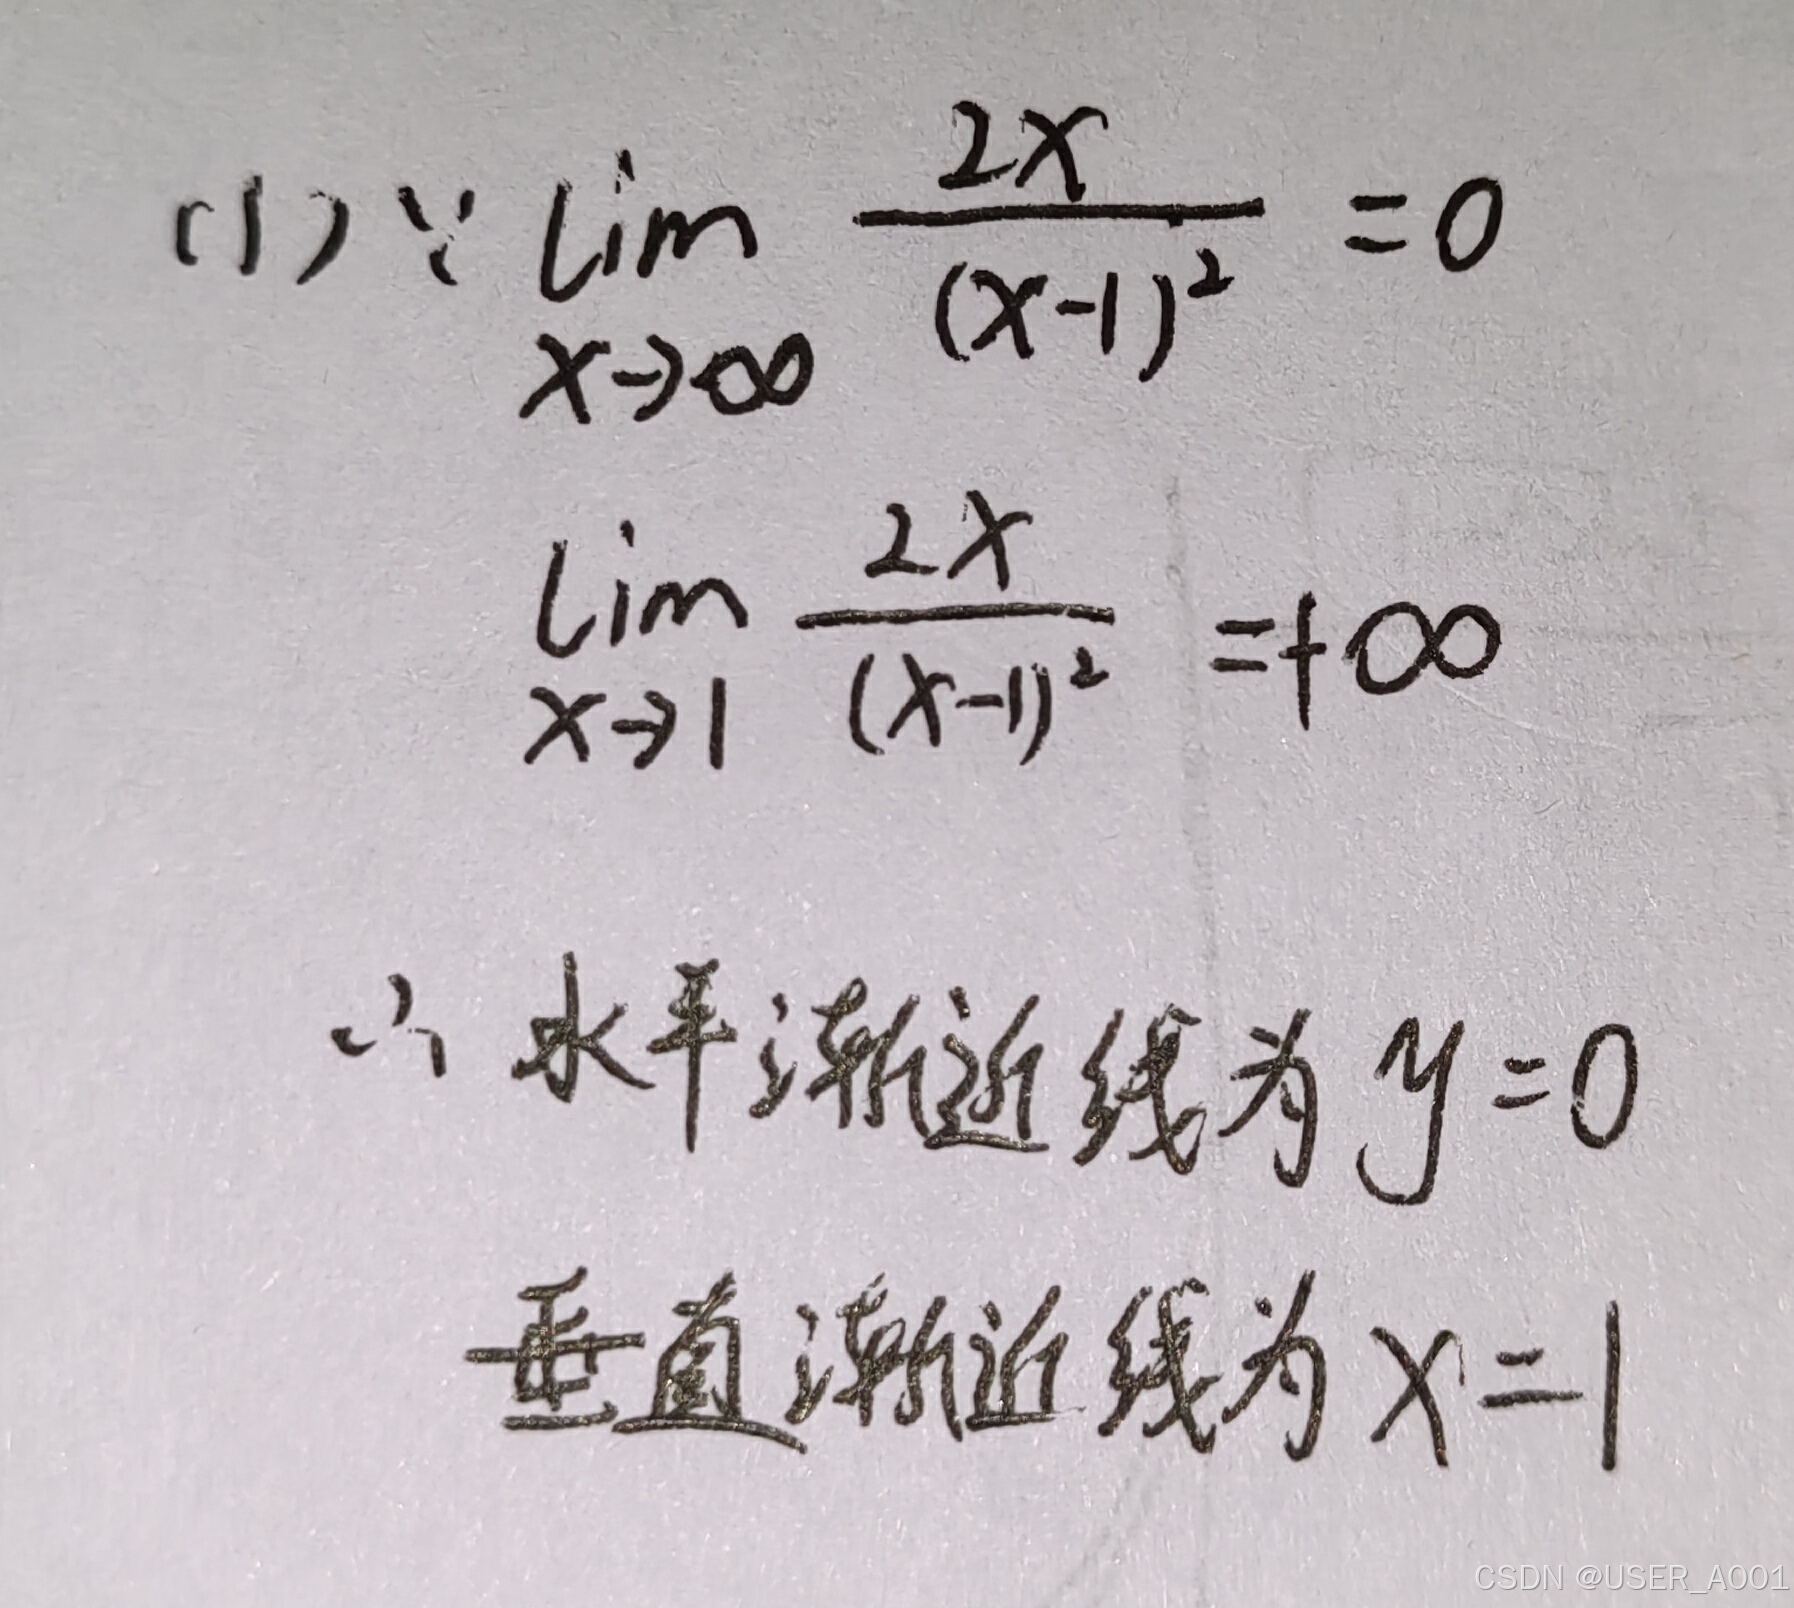 (1) ∵ lim x→∞ 2x/(x-1)² = 0
lim x→1 2x/(x-1)² = +∞
∴ 水平渐近线为 y=0
垂直渐近线为 x=1
CSDN @USER_A001